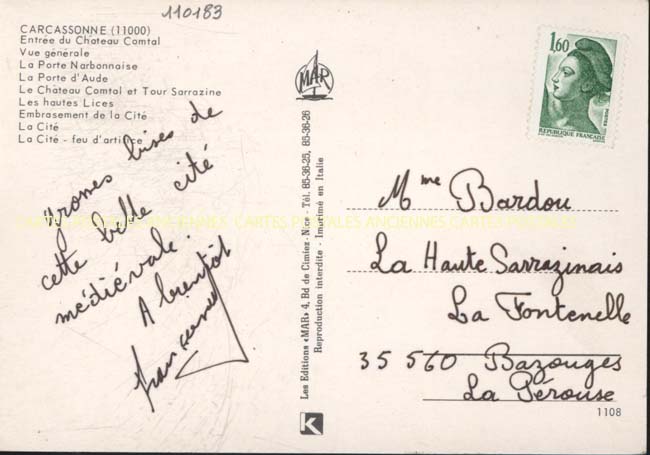 110183
CARCASSONNE (11000)
Entrée du Château Comtal
Vue générale
La Porte Narbonnaise
La Porte d'Aude
Le Château Comtal et Tour Sarrazine
Les hautes Lices
Embrasement de la Cité
La Cité
La Cité - feu d'artifice
grosses bises de
cette belle cité
médiévale.
A bientôt
MAR
Les Editions «MAR» 4, Bd de Cimiez - Nice - Tél. 85-36-25, 85-36-26
Reproduction interdite - Imprimé en Italie
K
1,60
POSTES
REPUBLIQUE FRANÇAISE
Mme Bardou
La Haute Sarrazinais
La Fontenelle
35 560 Bazouges
La Pérouse
1108
CARTES POSTALES ANCIENNES CARTES POSTALES ANCIENNES CARTES POSTALES